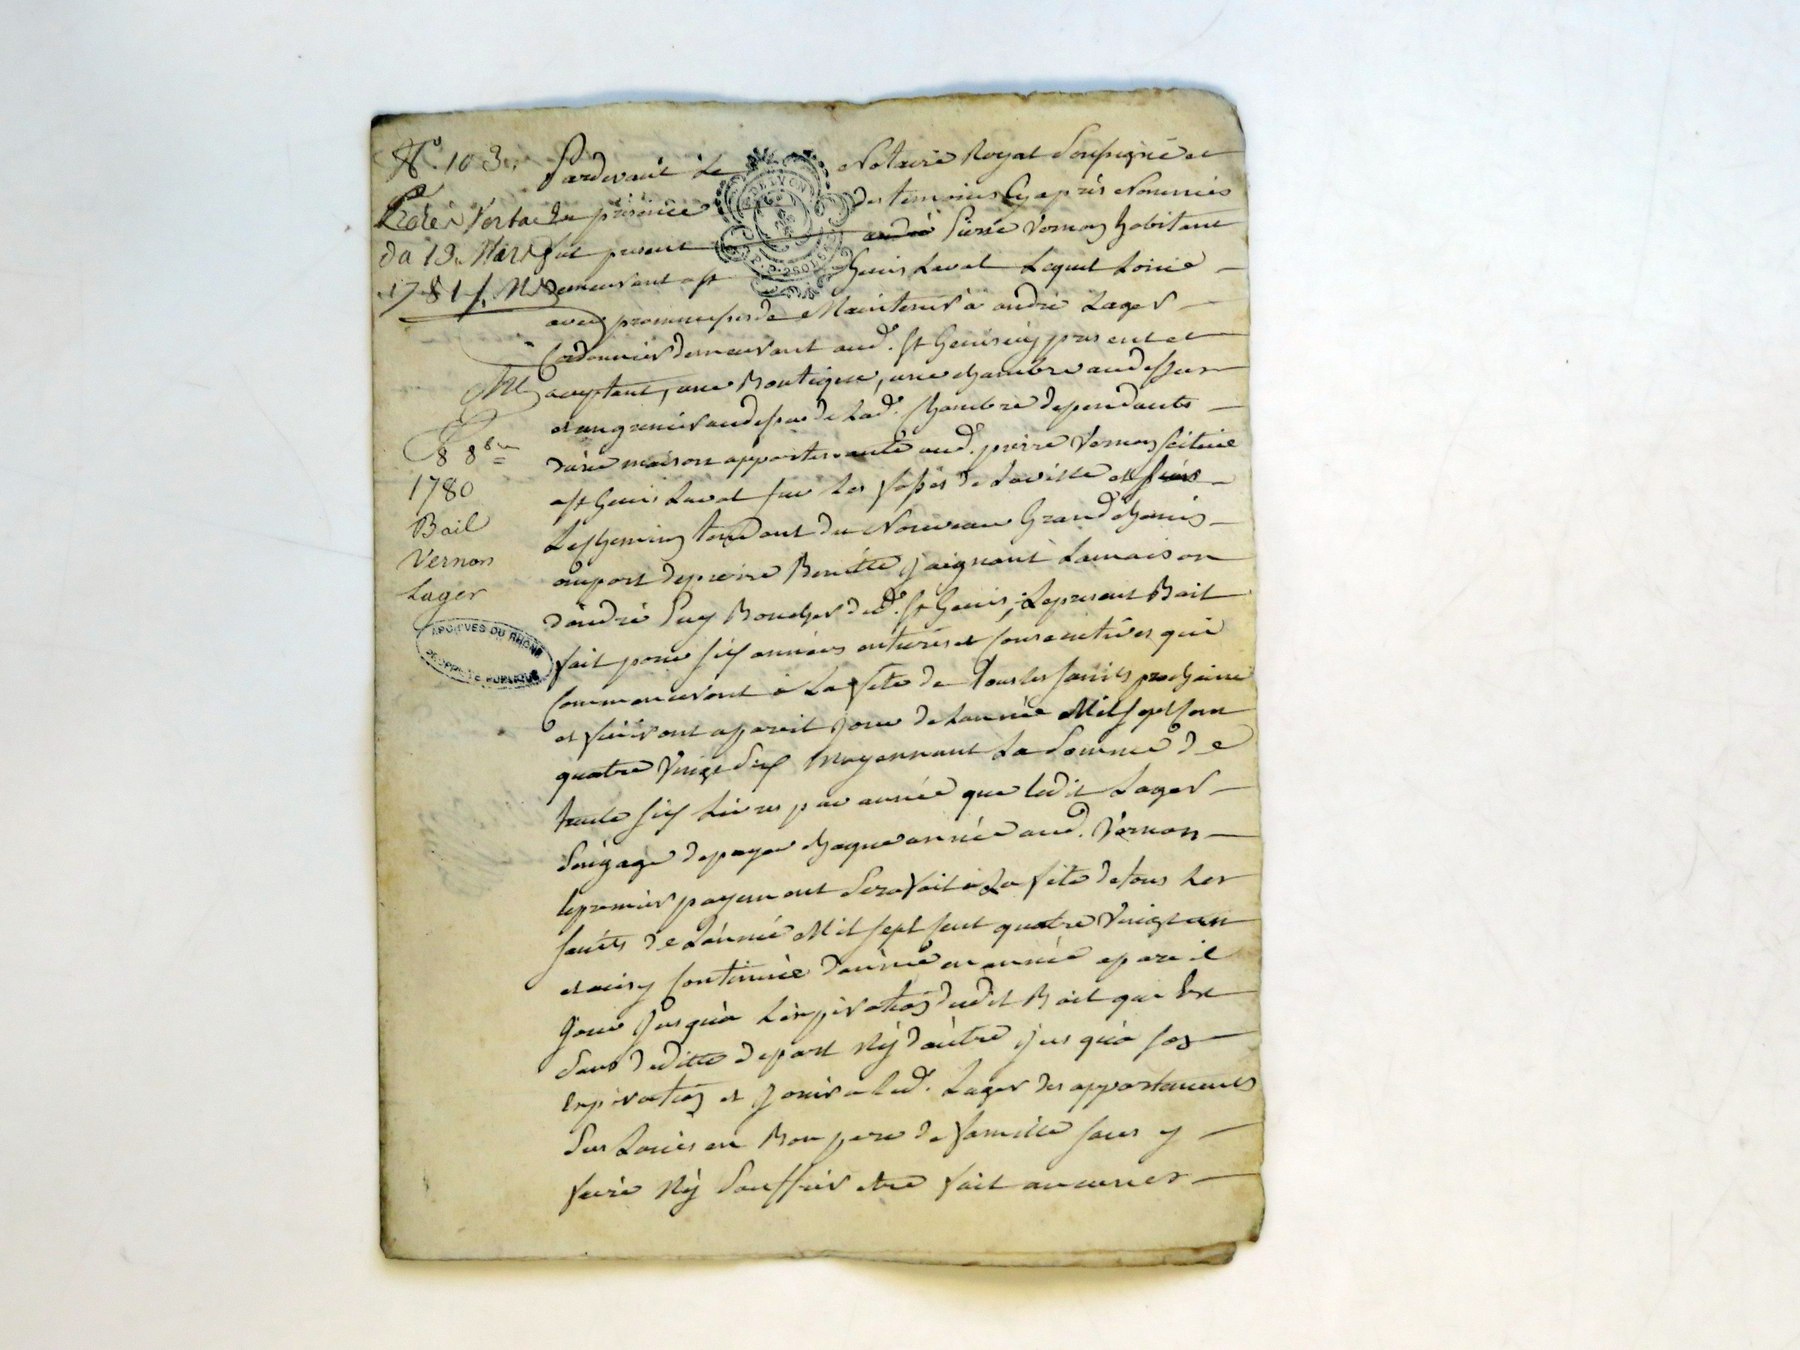 N.º 103.
Pardevant Le Notaire Royal Soussigné et
En présence des temoins Cy après Nommés
du 13. Mars fut present Pierre Vernon habitant
1781
demeurant a St Genis Laval Lequel Loüe
avec promesse de Maintenir à andré Lager
Cordonnier demeurant aud. St Genis icy present et
acceptant, une Boutique, une chambre au dessus
et un grenier au dessus de Lad. Chambre dependants
d'une maison appartenante aud. pierre Vernon scituée
a St Genis Laval sur Les fossés de La ville et
Le chemin tendant du Nouveau Grand chemin
au port de pierre Benitte, joignant La maison
d'andré Puy Boucher dud. St Genis, Le present Bail
fait pour six années entieres et consecutives qui
commenceront à La fete de Tous les saints prochaine
et finiront a pareil jour de L'année Mil sept Cent
quatre Vingt Six Moyennant La Somme de
trente six Livres par année que ledit Lager
S'engage de payer chaque année aud. Vernon
le premier payement Sera fait à La fête de tous Les
saints de L'année Mil sept Cent quatre Vingt un
et ainsy continuée d'année en année a pareil
jour jusqu'à L'expiration dudit Bail qui Est
Sans deditte de part Ny d'autre jusqu'à son
Expiration et jouira led. Lager des appartements
Sus Loués en Bon pere de famille sans y
faire Ny Souffrir etre fait aucunes
8 8bre
1780
Bail
Vernon
Lager
ARCHIVES DU RHÔNE
PROPRIÉTÉ PUBLIQUE